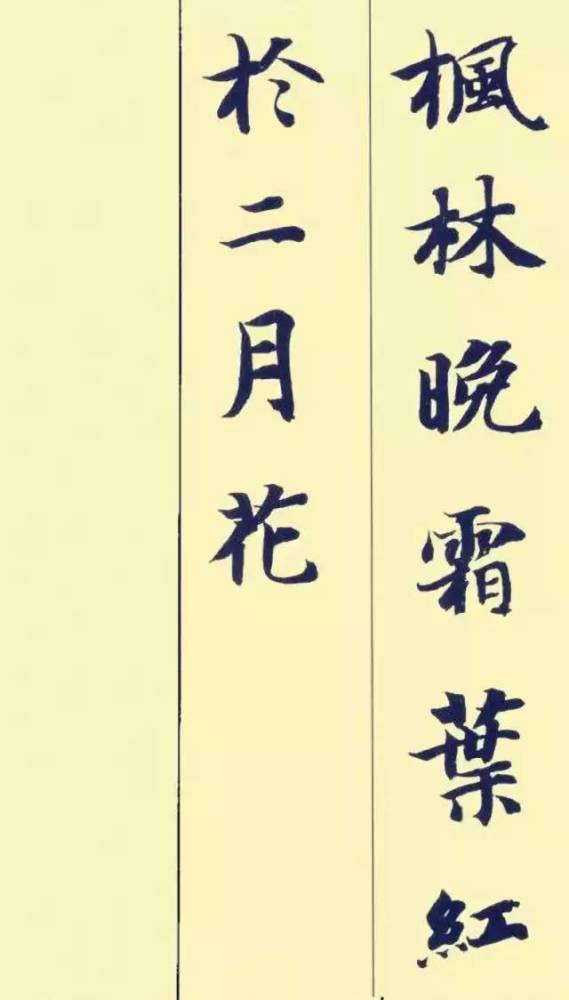 楓林晚霜葉紅
於二月花